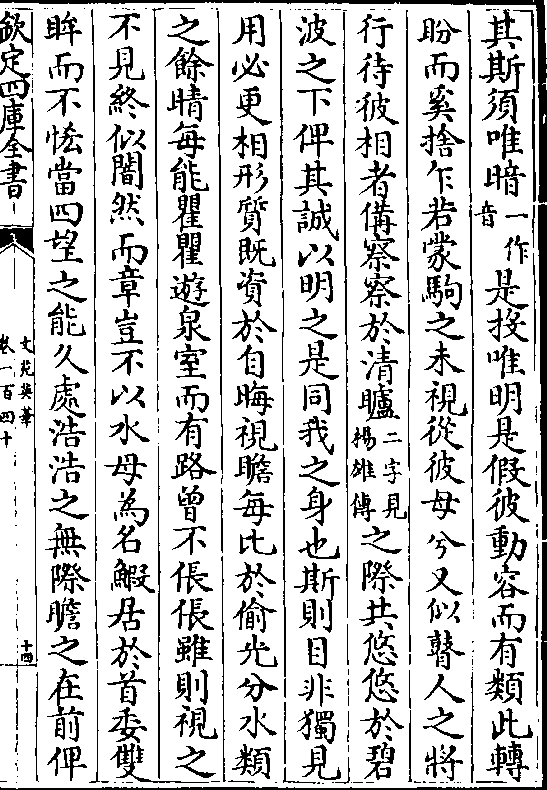 其斯須唯暗一作音是投唯明是假彼動容而有類此轉
盼而奚捨乍若蒙駒之未視從彼母兮又似瞽人之將
行待彼相者偹察察於清矑二字見楊雄傳之際共悠悠於碧
波之下俾其誠以明之是同我之身也斯則目非獨見
用必更相形質既資於自晦視瞻每比於偷光分水類
之餘睛每能瞿瞿遊泉室而有路曾不倀倀雖則視之
不見終似闇然而章豈不以水母為名鰕居於首委雙
眸而不恡當四望之能久處浩浩之無際瞻之在前俾
欽定四庫全書
文苑英華
卷一百四十
十四